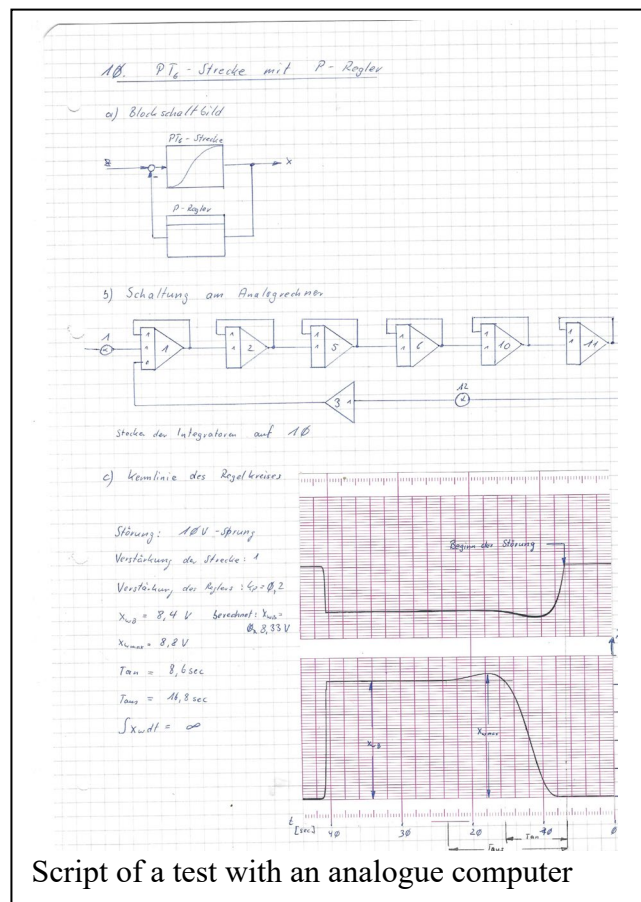 10. PT6-Strecke mit P-Regler
a) Blockschaltbild
PT6-Strecke
x
P-Regler
b) Schaltung am Analogrechner
1
1 1 1 1 1 1
1 1 1 1 1 1
0
1 2 5 6 10 11
3 1
12
Stecker der Integratoren auf 10
c) Kennlinie des Regelkreises
Störung: 10V-Sprung
Verstärkung der Strecke: 1
Verstärkung des Reglers: kp=0,2
XwB = 8,4 V berechnet: XwB=
8,33 V
Xwmax = 8,8 V
Tan = 8,6 sec
Taus = 16,8 sec
∫Xwdt = ∞
Beginn der Störung
XwB
Xwmax
t
[sec] 40 30 20 10 0
Tan
Taus
Script of a test with an analogue computer